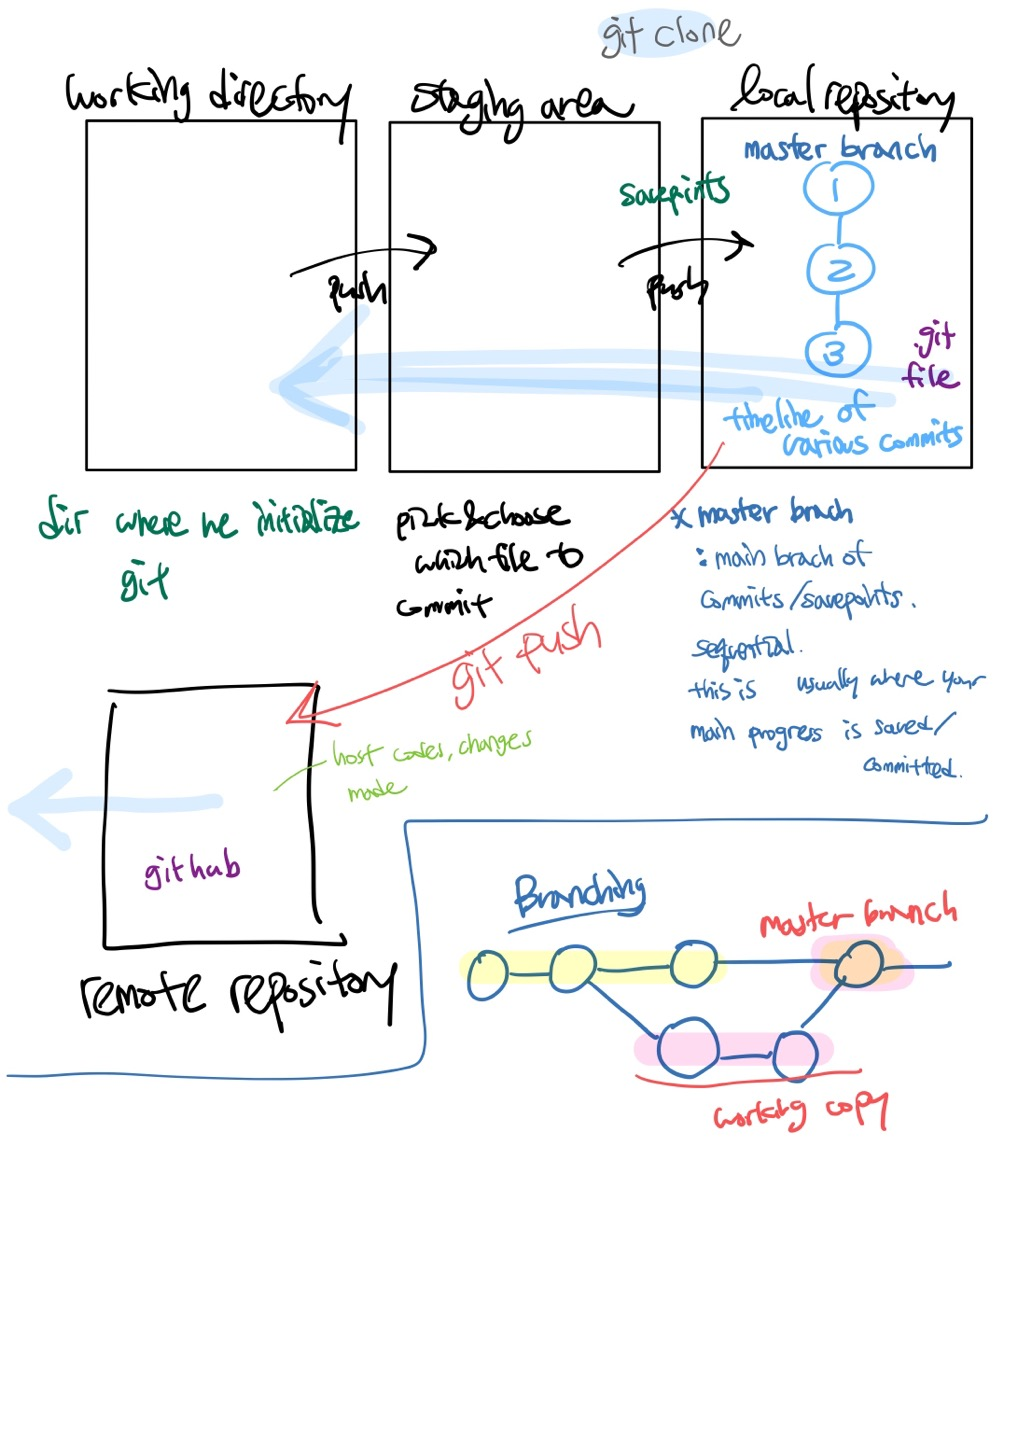 git clone
working directory
staging area
local repository
master branch
1
savepints
2
push
push
3
.git
file
timeline of
various commits
dir where we initialize
git
pick & choose
which file to
commit
* master brach
: main brach of
commits/savepoints.
sequential.
this is usually where your
main progress is saved/
committed.
git push
host codes, changes
made
github
remote repository
Branching
master branch
working copy